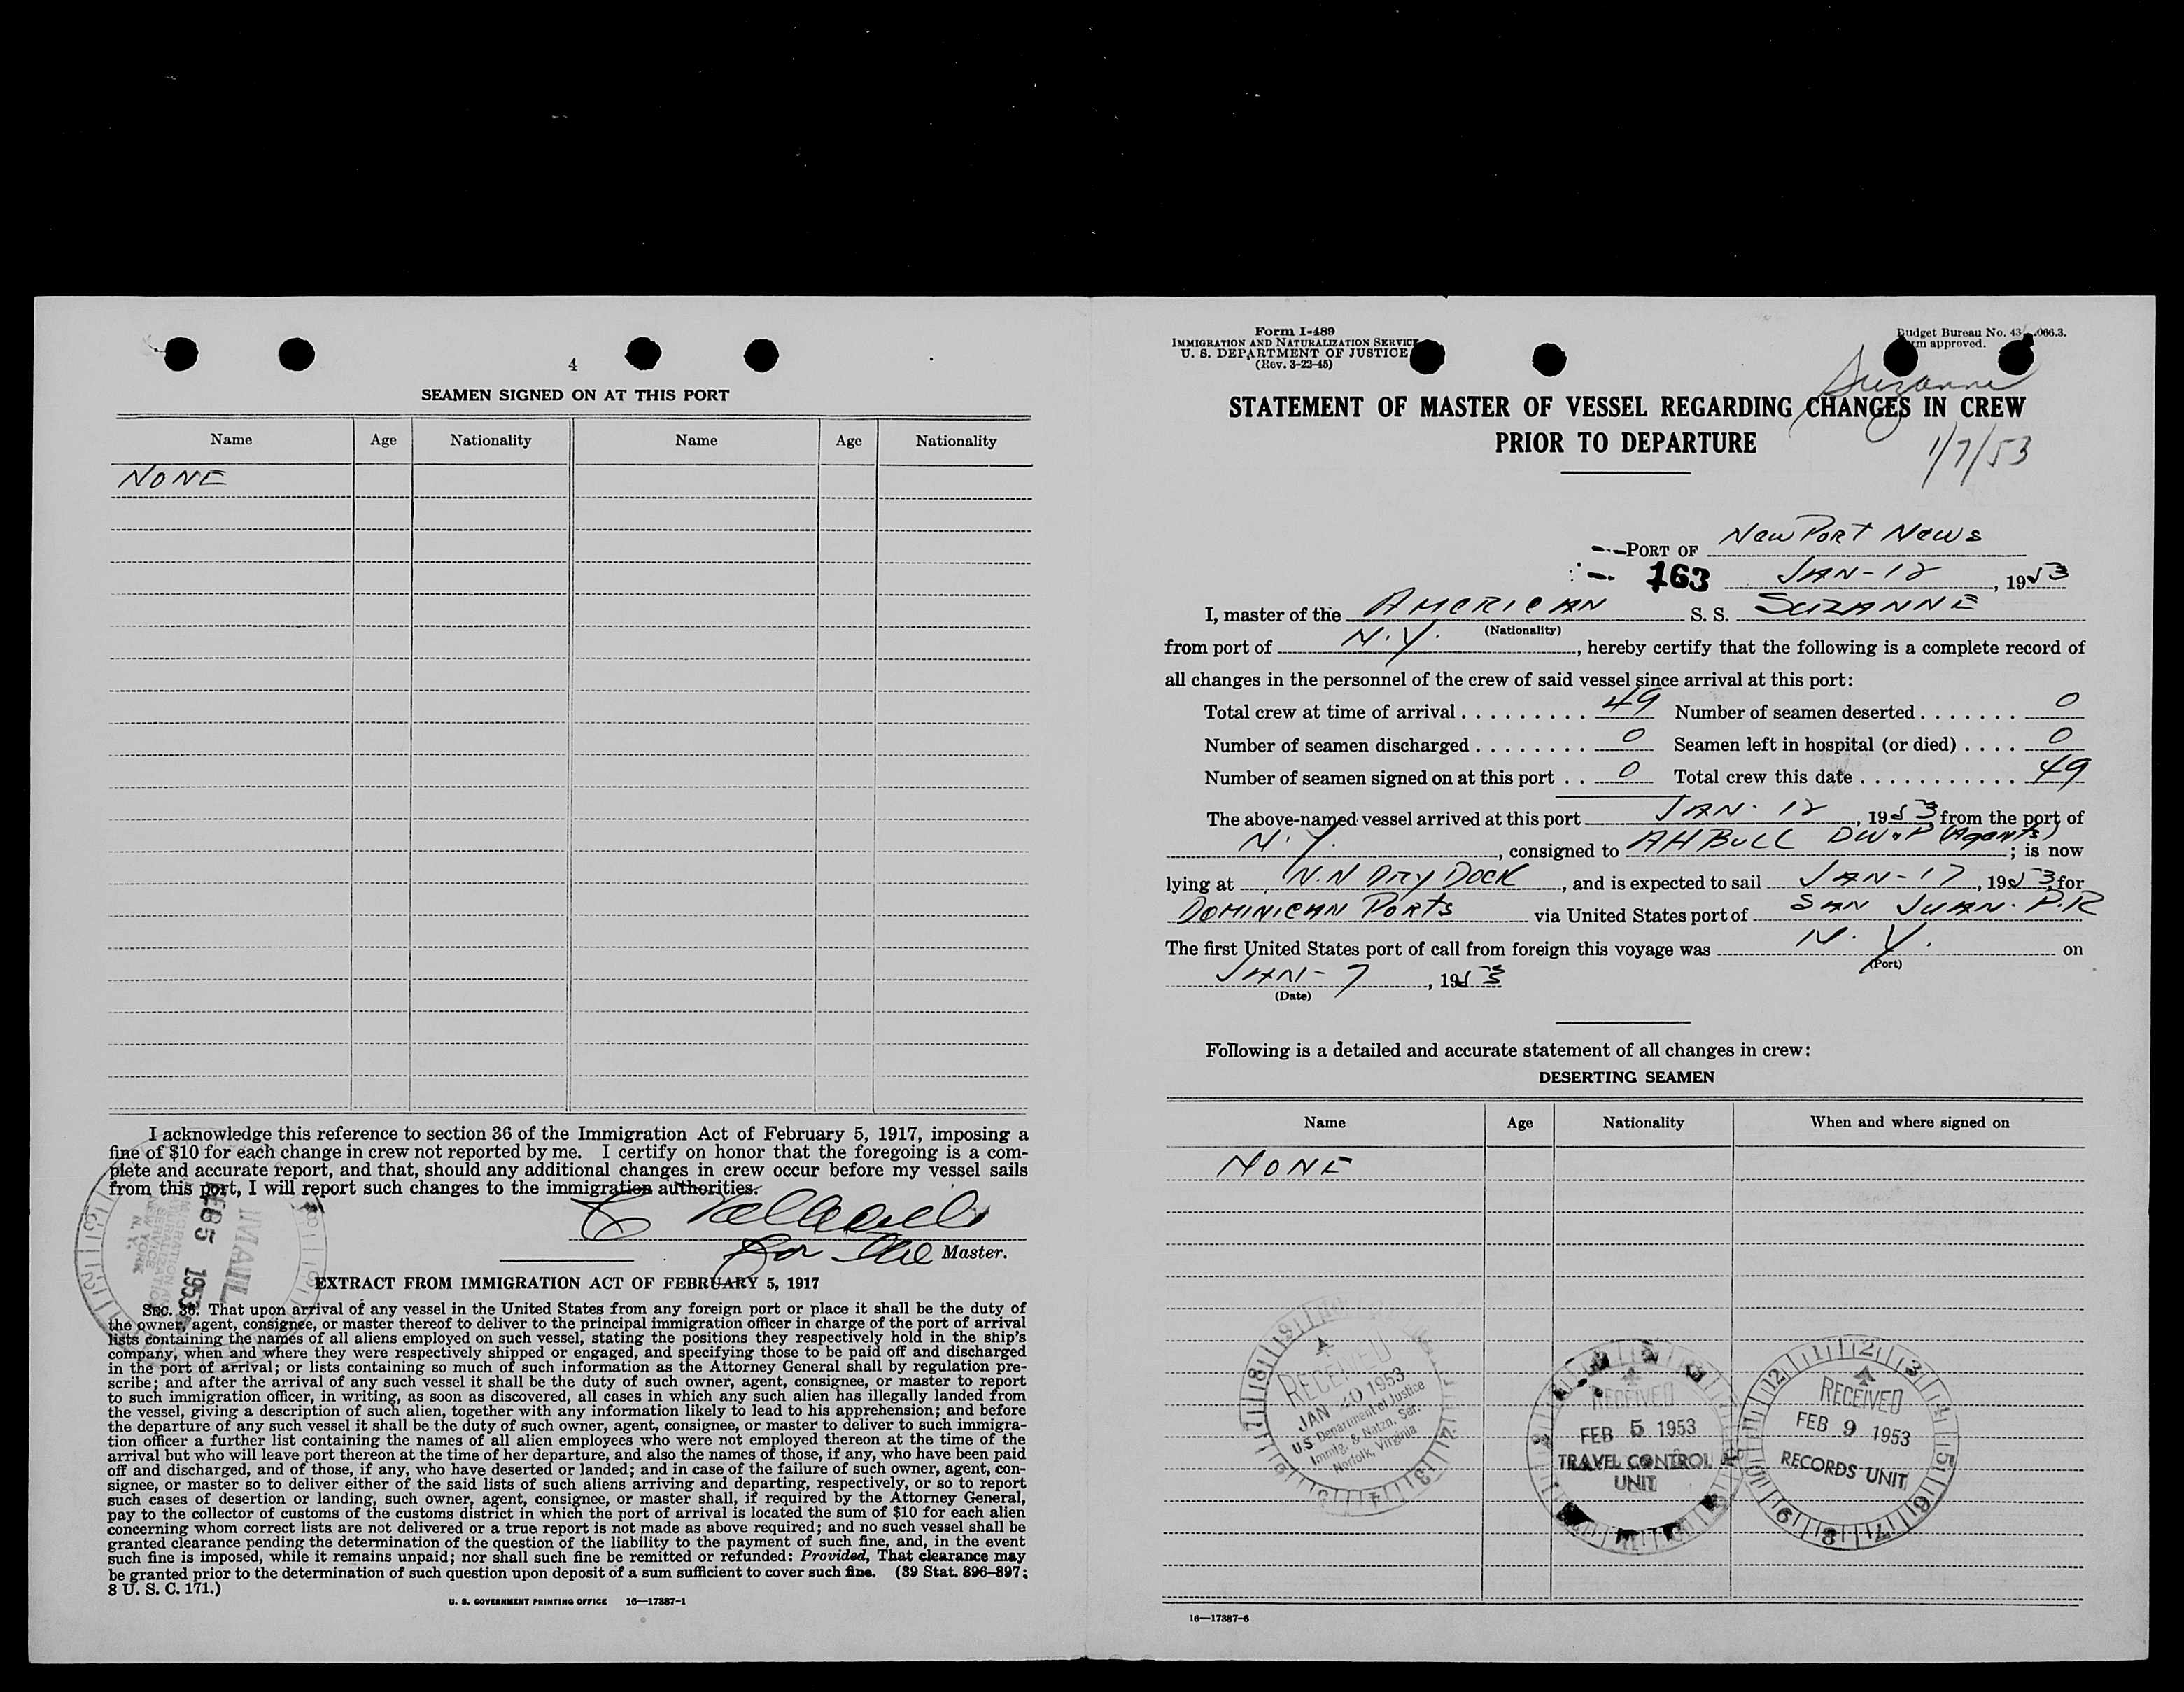 4
SEAMEN SIGNED ON AT THIS PORT
Name Age Nationality Name Age Nationality
NONE
I acknowledge this reference to section 36 of the Immigration Act of February 5, 1917, imposing a
fine of $10 for each change in crew not reported by me. I certify on honor that the foregoing is a com-
plete and accurate report, and that, should any additional changes in crew occur before my vessel sails
from this port, I will report such changes to the immigration authorities.
for the Master.
INMAIL
FEB 5 1953
IMMIGRATION AND
NATURALIZATION
SERVICE
NEW YORK
N. Y.
EXTRACT FROM IMMIGRATION ACT OF FEBRUARY 5, 1917
SEC. 36. That upon arrival of any vessel in the United States from any foreign port or place it shall be the duty of
the owner, agent, consignee, or master thereof to deliver to the principal immigration officer in charge of the port of arrival
lists containing the names of all aliens employed on such vessel, stating the positions they respectively hold in the ship's
company, when and where they were respectively shipped or engaged, and specifying those to be paid off and discharged
in the port of arrival; or lists containing so much of such information as the Attorney General shall by regulation pre-
scribe; and after the arrival of any such vessel it shall be the duty of such owner, agent, consignee, or master to report
to such immigration officer, in writing, as soon as discovered, all cases in which any such alien has illegally landed from
the vessel, giving a description of such alien, together with any information likely to lead to his apprehension; and before
the departure of any such vessel it shall be the duty of such owner, agent, consignee, or master to deliver to such immigra-
tion officer a further list containing the names of all alien employees who were not employed thereon at the time of the
arrival but who will leave port thereon at the time of her departure, and also the names of those, if any, who have been paid
off and discharged, and of those, if any, who have deserted or landed; and in case of the failure of such owner, agent, con-
signee, or master so to deliver either of the said lists of such aliens arriving and departing, respectively, or so to report
such cases of desertion or landing, such owner, agent, consignee, or master shall, if required by the Attorney General,
pay to the collector of customs of the customs district in which the port of arrival is located the sum of $10 for each alien
concerning whom correct lists are not delivered or a true report is not made as above required; and no such vessel shall be
granted clearance pending the determination of the question of the liability to the payment of such fine, and, in the event
such fine is imposed, while it remains unpaid; nor shall such fine be remitted or refunded: Provided, That clearance may
be granted prior to the determination of such question upon deposit of a sum sufficient to cover such fine. (39 Stat. 896–897;
8 U. S. C. 171.)
U. S. GOVERNMENT PRINTING OFFICE 16—17387-1
Form I-489
IMMIGRATION AND NATURALIZATION SERVICE
U. S. DEPARTMENT OF JUSTICE
(Rev. 3-22-45)
Budget Bureau No. 43 066.3.
approved.
Suzanne
STATEMENT OF MASTER OF VESSEL REGARDING CHANGES IN CREW
PRIOR TO DEPARTURE
1/7/53
PORT OF NewPort News
163 JAN-12, 1953
I, master of the AMERICAN S. S. SUZANNE
(Nationality)
from port of N.Y., hereby certify that the following is a complete record of
all changes in the personnel of the crew of said vessel since arrival at this port:
Total crew at time of arrival 49 Number of seamen deserted 0
Number of seamen discharged 0 Seamen left in hospital (or died) 0
Number of seamen signed on at this port 0 Total crew this date 49
The above-named vessel arrived at this port JAN. 12, 1953 from the port of
N.Y., consigned to AH BULL DW&P (Agents); is now
lying at N.N Dry Dock, and is expected to sail JAN-17, 1953 for
DOMINICAN PORTS via United States port of SAN JUAN. P.R
The first United States port of call from foreign this voyage was N.Y. on
(Port)
JAN-7, 1953
(Date)
Following is a detailed and accurate statement of all changes in crew:
DESERTING SEAMEN
Name Age Nationality When and where signed on
NONE
RECEIVED
JAN 20 1953
U.S. Department of Justice
Immig. & Natzn. Ser.
Norfolk, Virginia
RECEIVED
FEB 5 1953
TRAVEL CONTROL
UNIT
RECEIVED
FEB 9 1953
RECORDS UNIT
16—17387-6